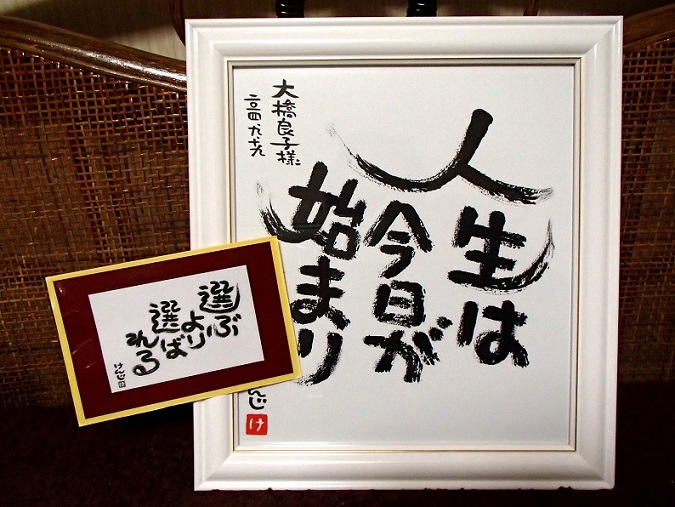 人生は
今日が
始まり
大橋良子様
二〇一四 九 十九
んじ
け
選ぶ
より
選ば
れる
けんじ